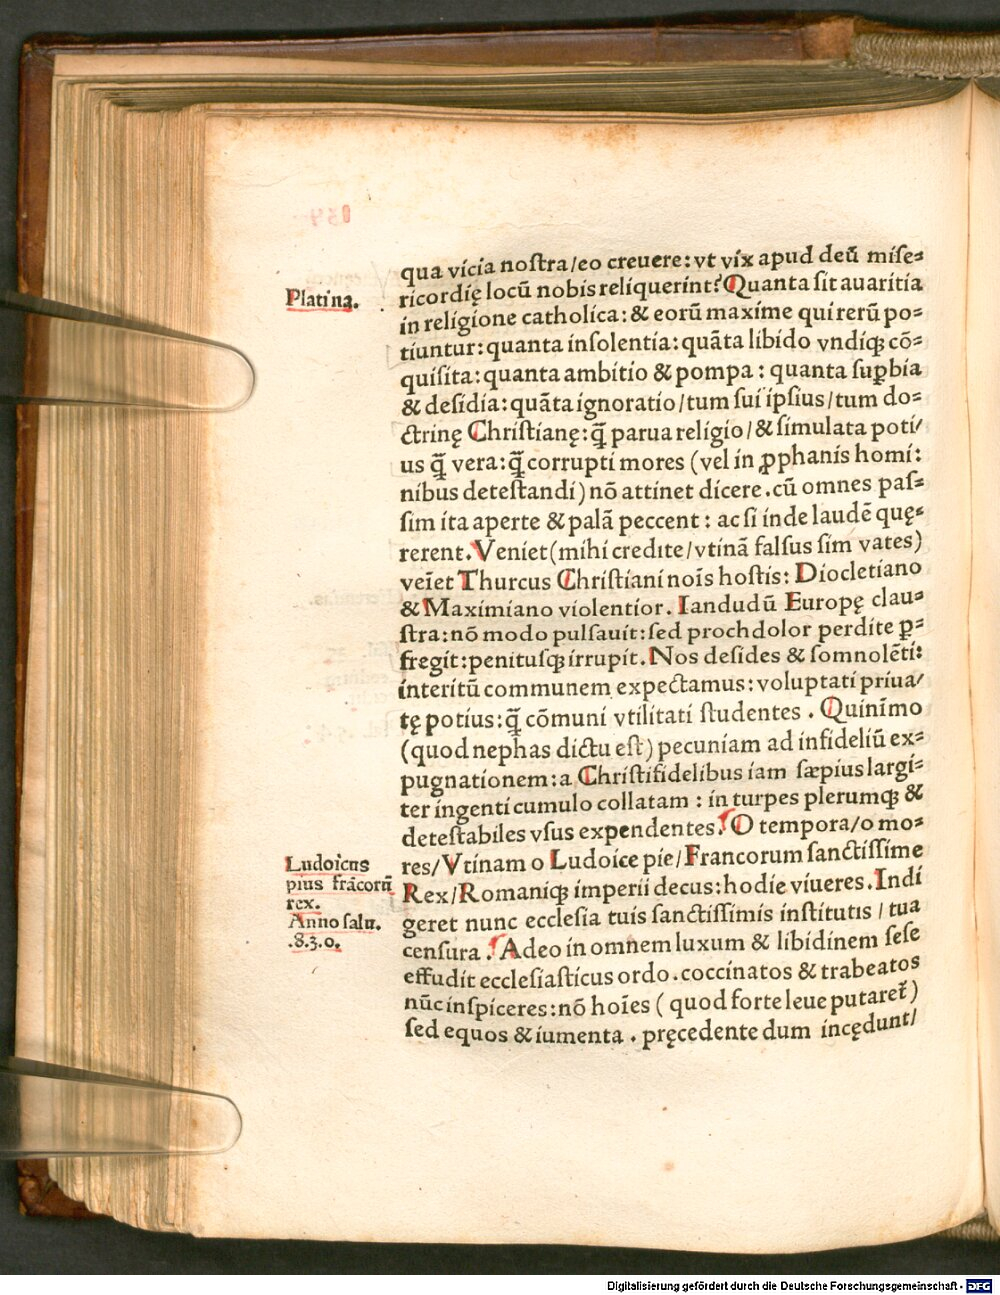 Platina.
qua vicia nostra/eo creuere: vt vix apud deū mise⸗
ricordię locū nobis reliquerint? Quanta sit auaritia
in religione catholica: & eorū maxime qui rerū po⸗
tiuntur: quanta insolentia: quāta libido vndiqꝫ cō⸗
quisita: quanta ambitio & pompa: quanta suꝑbia
& desidia: quāta ignoratio/tum sui ipsius/tum do⸗
ctrinę Christianę: q̄ parua religio/& simulata poti/
us q̄ vera: q̄ corrupti mores (vel in ꝓphanis homi:
nibus detestandi) nō attinet dicere. cū omnes pas⸗
sim ita aperte & palā peccent: ac si inde laudē quę⸗
rerent. Veniet (mihi credite/vtinā falsus sim vates)
veīet Thurcus Christiani noīs hostis: Diocletiano
& Maximiano violentior. Iandudū Europę clau⸗
stra: nō modo pulsauit: sed prochdolor perdite ꝑ⸗
fregit: penitusqꝫ irrupit. Nos desides & somnolēti:
interitū communem expectamus: voluptati priua/
tę potius: q̄ cōmuni vtilitati studentes. Quinīmo
(quod nephas dictu est) pecuniam ad infideliū ex⸗
pugnationem: a Christifidelibus iam sæpius largi⸗
ter ingenti cumulo collatam: in turpes plerumqꝫ &
detestabiles vsus expendentes. O tempora/o mo⸗
res/Vtinam o Ludoice pie/Francorum sanctissime
Rex/Romaniqꝫ imperii decus: hodie viueres. Indi
geret nunc ecclesia tuis sanctissimis institutis/tua
censura. Adeo in omnem luxum & libidinem sese
effudit ecclesiasticus ordo. coccinatos & trabeatos
nūc inspiceres: nō hoīes (quod forte leue putaret̄)
sed equos & iumenta. pręcedente dum incędunt/
Ludoicus
pius frācorū
rex.
Anno salu.
.8.3.0.
Digitalisierung gefördert durch die Deutsche Forschungsgemeinschaft - DFG